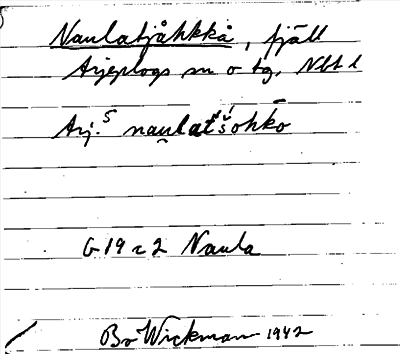 Naulatjåhkkå, fjäll
Arjeplogs sn o tg, Nbt l
Arj. 5 nau̯latˈšohkō
G 19 c 2 Naula
Bo Wickman 1942